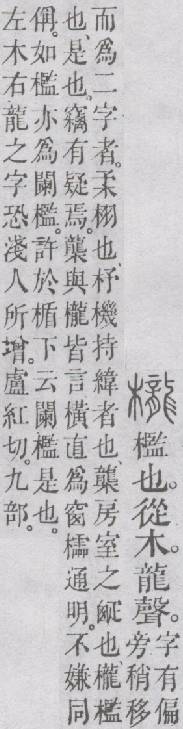 櫳 檻也。從木。龍聲。字有偏
旁稍移
而爲二字者。柔栩也、杼機持緯者也櫳房室之疏也、櫳檻
也、是也。竊有疑焉。櫳與櫳皆言橫直爲窗櫺通明。不嫌同
偁。如檻亦爲闌檻。許於楯下云闌檻是也。
左木右龍之字恐淺人所增。盧紅切。九部。